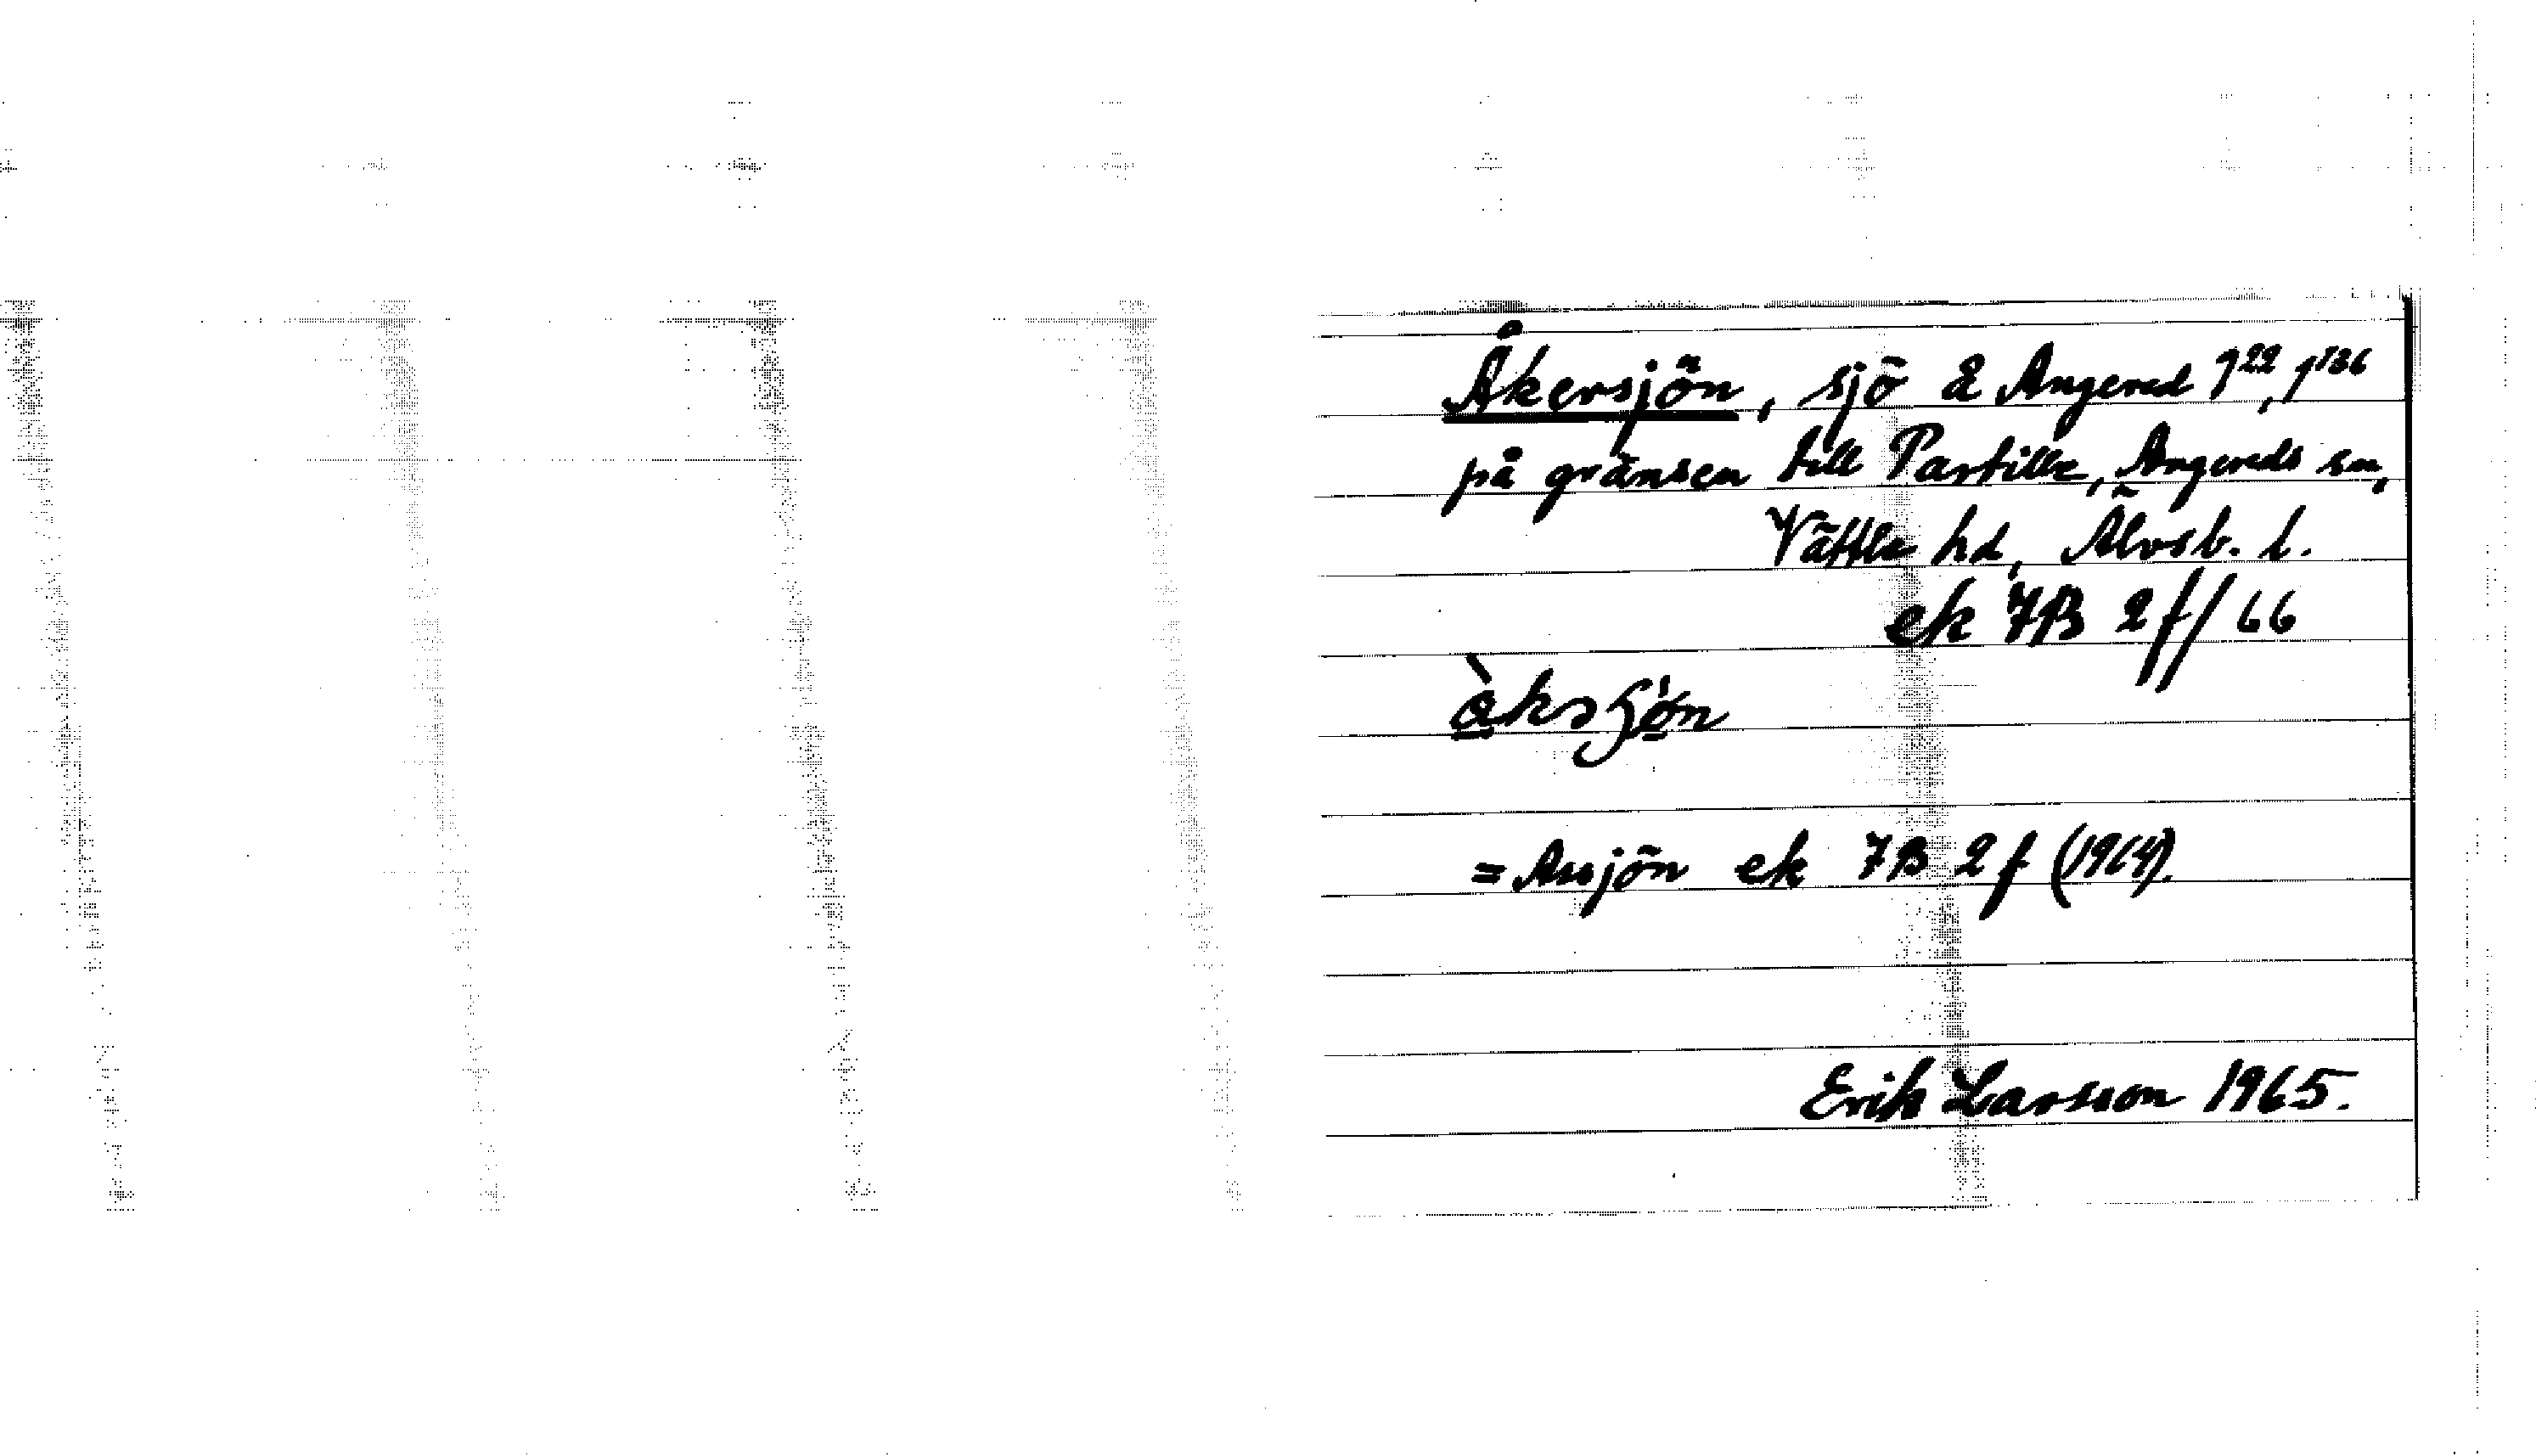 Åkersjön, sjö å Angered 1²², 1¹³⁶
på gränsen till Partille, Angereds sn,
Vättle hd, Älvsb. l.
ek 7B 2f/66
= Assjön ek 7B 2f (1964).
Erik Larsson 1965.